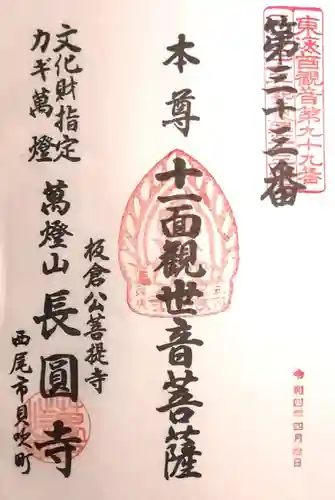 東海百觀音第九十九番
第三十三番
本尊
十一面觀世音菩薩
板倉公菩提寺
文化財指定
カギ萬燈
萬燈山
長圓寺
西尾市貝吹町